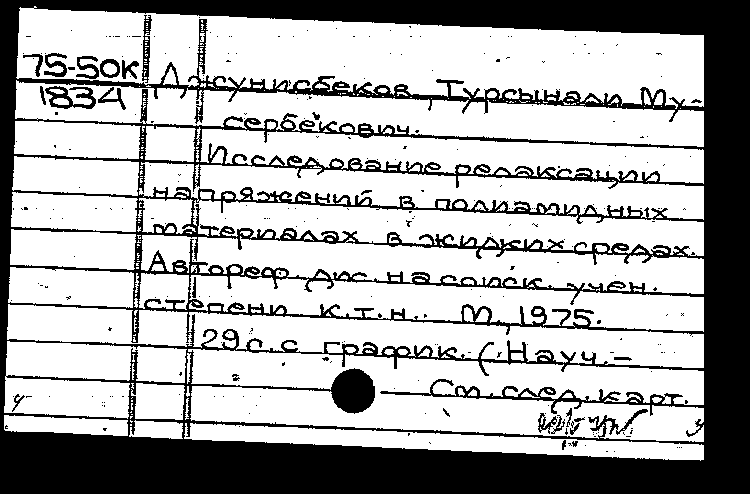 75-50К
1834
Джунисбеков, Турсынали Му-
сербекович.
Исследование релаксации
напряжений в полиамидных
материалах в жидких средах.
Автореф. дис. на соиск. учен.
степени к.т.н. М., 1975.
29 с. с график. (Науч.-
См. след. карт.